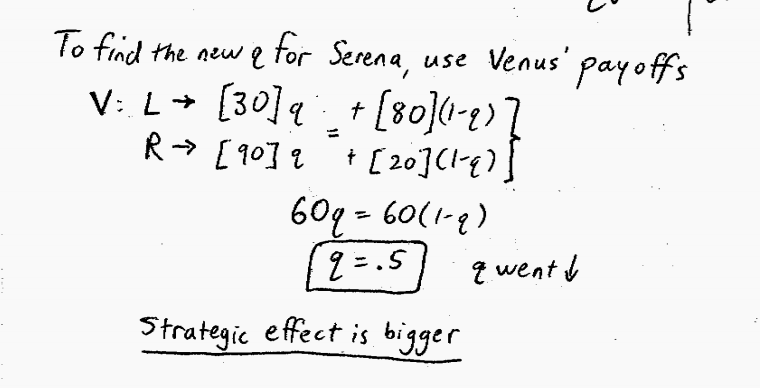 To find the new q for Serena, use Venus' payoffs
V: L → [30]q + [80](1-q)
=
R → [90]q + [20](1-q)
60q = 60(1-q)
q = .5 q went ↓
Strategic effect is bigger